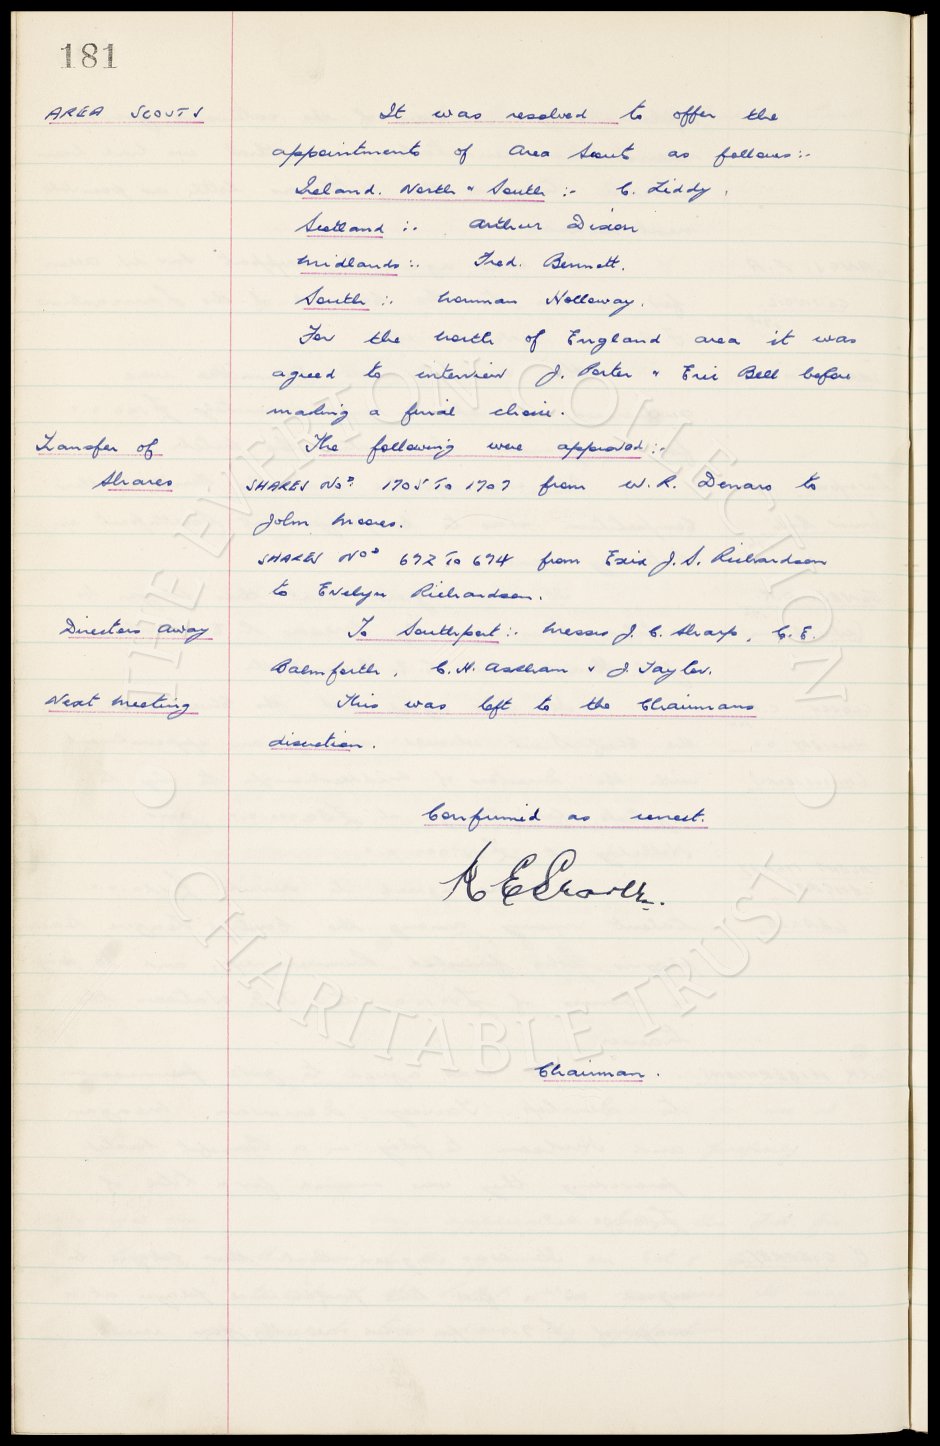 181
AREA SCOUTS It was resolved to offer the
appointments of Area Scouts as follows:-
Ireland. North " South :- C. Liddy.
Scotland :- Arthur Dixon
Midlands :- Fred. Bennett.
South :- Norman Holloway.
For the North of England area it was
agreed to interview J. Porter " Eric Bell before
making a final choice.
Transfer of The following were approved :-
Shares SHARES Nos. 1705 To 1707 from W. R. Denaro to
John Meares.
SHARES Nos 672 To 674 from J. S. Richardson
to Evelyn Richardson.
Directors Away To Southport :- Messrs J. C. Sharp, C. E.
Balmforth, C. H. Askham & J. Taylor.
Next Meeting This was left to the Chairmans
discretion.
Confirmed as correct.
Chairman.
THE EVERTON COLLECTION
CHARITABLE TRUST